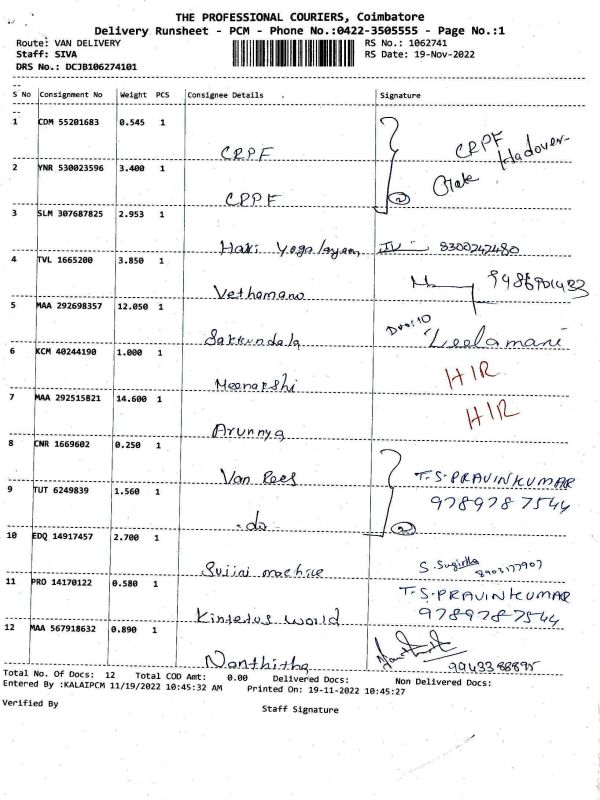 THE PROFESSIONAL COURIERS, Coimbatore
Delivery Runsheet - PCM - Phone No.:0422-3505555 - Page No.:1
Route: VAN DELIVERY RS No.: 1062741
Staff: SIVA RS Date: 19-Nov-2022
DRS No.: DCJB106274101
S No Consignment No Weight PCS Consignee Details Signature
1 CDM 55201683 0.545 1
CRPF CRPF
2 YNR 530023596 3.400 1
CPPF 2
3 SLM 307687825 2.953 1
Hari Yogalayam 8300242480
4 TVL 1665200 3.850 1
Vethamano
5 MAA 292698357 12.050 1
Sakkundala Leelamani
6 KCM 40244190 1.000 1 HIR
Meenakshi
7 MAA 292515821 14.600 1 HIR
Arunnya
8 CNR 1669602 0.250 1
Van Rees T.S.PRAVINKUMAR
9 TUT 6249839 1.560 1 9789787544
do 2
10 EDQ 14917457 2.700 1
machine
11 PRO 14170122 0.580 1 T.S.PRAVINKUMAR
World 9789787544
12 MAA 567918632 0.890 1
Nanthitha
Total No. Of Docs: 12 Total COD Amt: 0.00 Delivered Docs: Non Delivered Docs:
Entered By :KALAIPCM 11/19/2022 10:45:32 AM Printed On: 19-11-2022 10:45:27
Verified By
Staff Signature